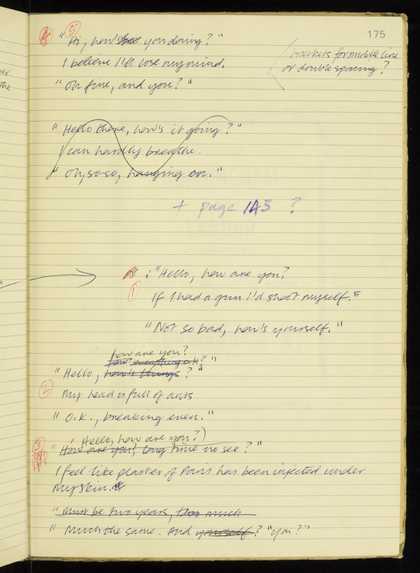 175
"Hi, how's you doing?"
I believe I'll lose my mind.
"Oh fine, and you?"
brackets for middle line
or double spacing?
"Hello there, how's it going?"
I can hardly breathe.
"Oh, so-so, hanging on."
+ page 143 ?
: "Hello, how are you?
1
If I had a gun I'd shoot myself."
"Not so bad, how's yourself."
how are you?
"Hello, how's things?"
2
My head is full of ants
"O.K., breaking even."
Hello, how are you?)
3
"How are you?, long time no see?"
I feel like plaster of Paris has been injected under
my skin.
"Must be two years,
"Much the same. And yourself? "you?"